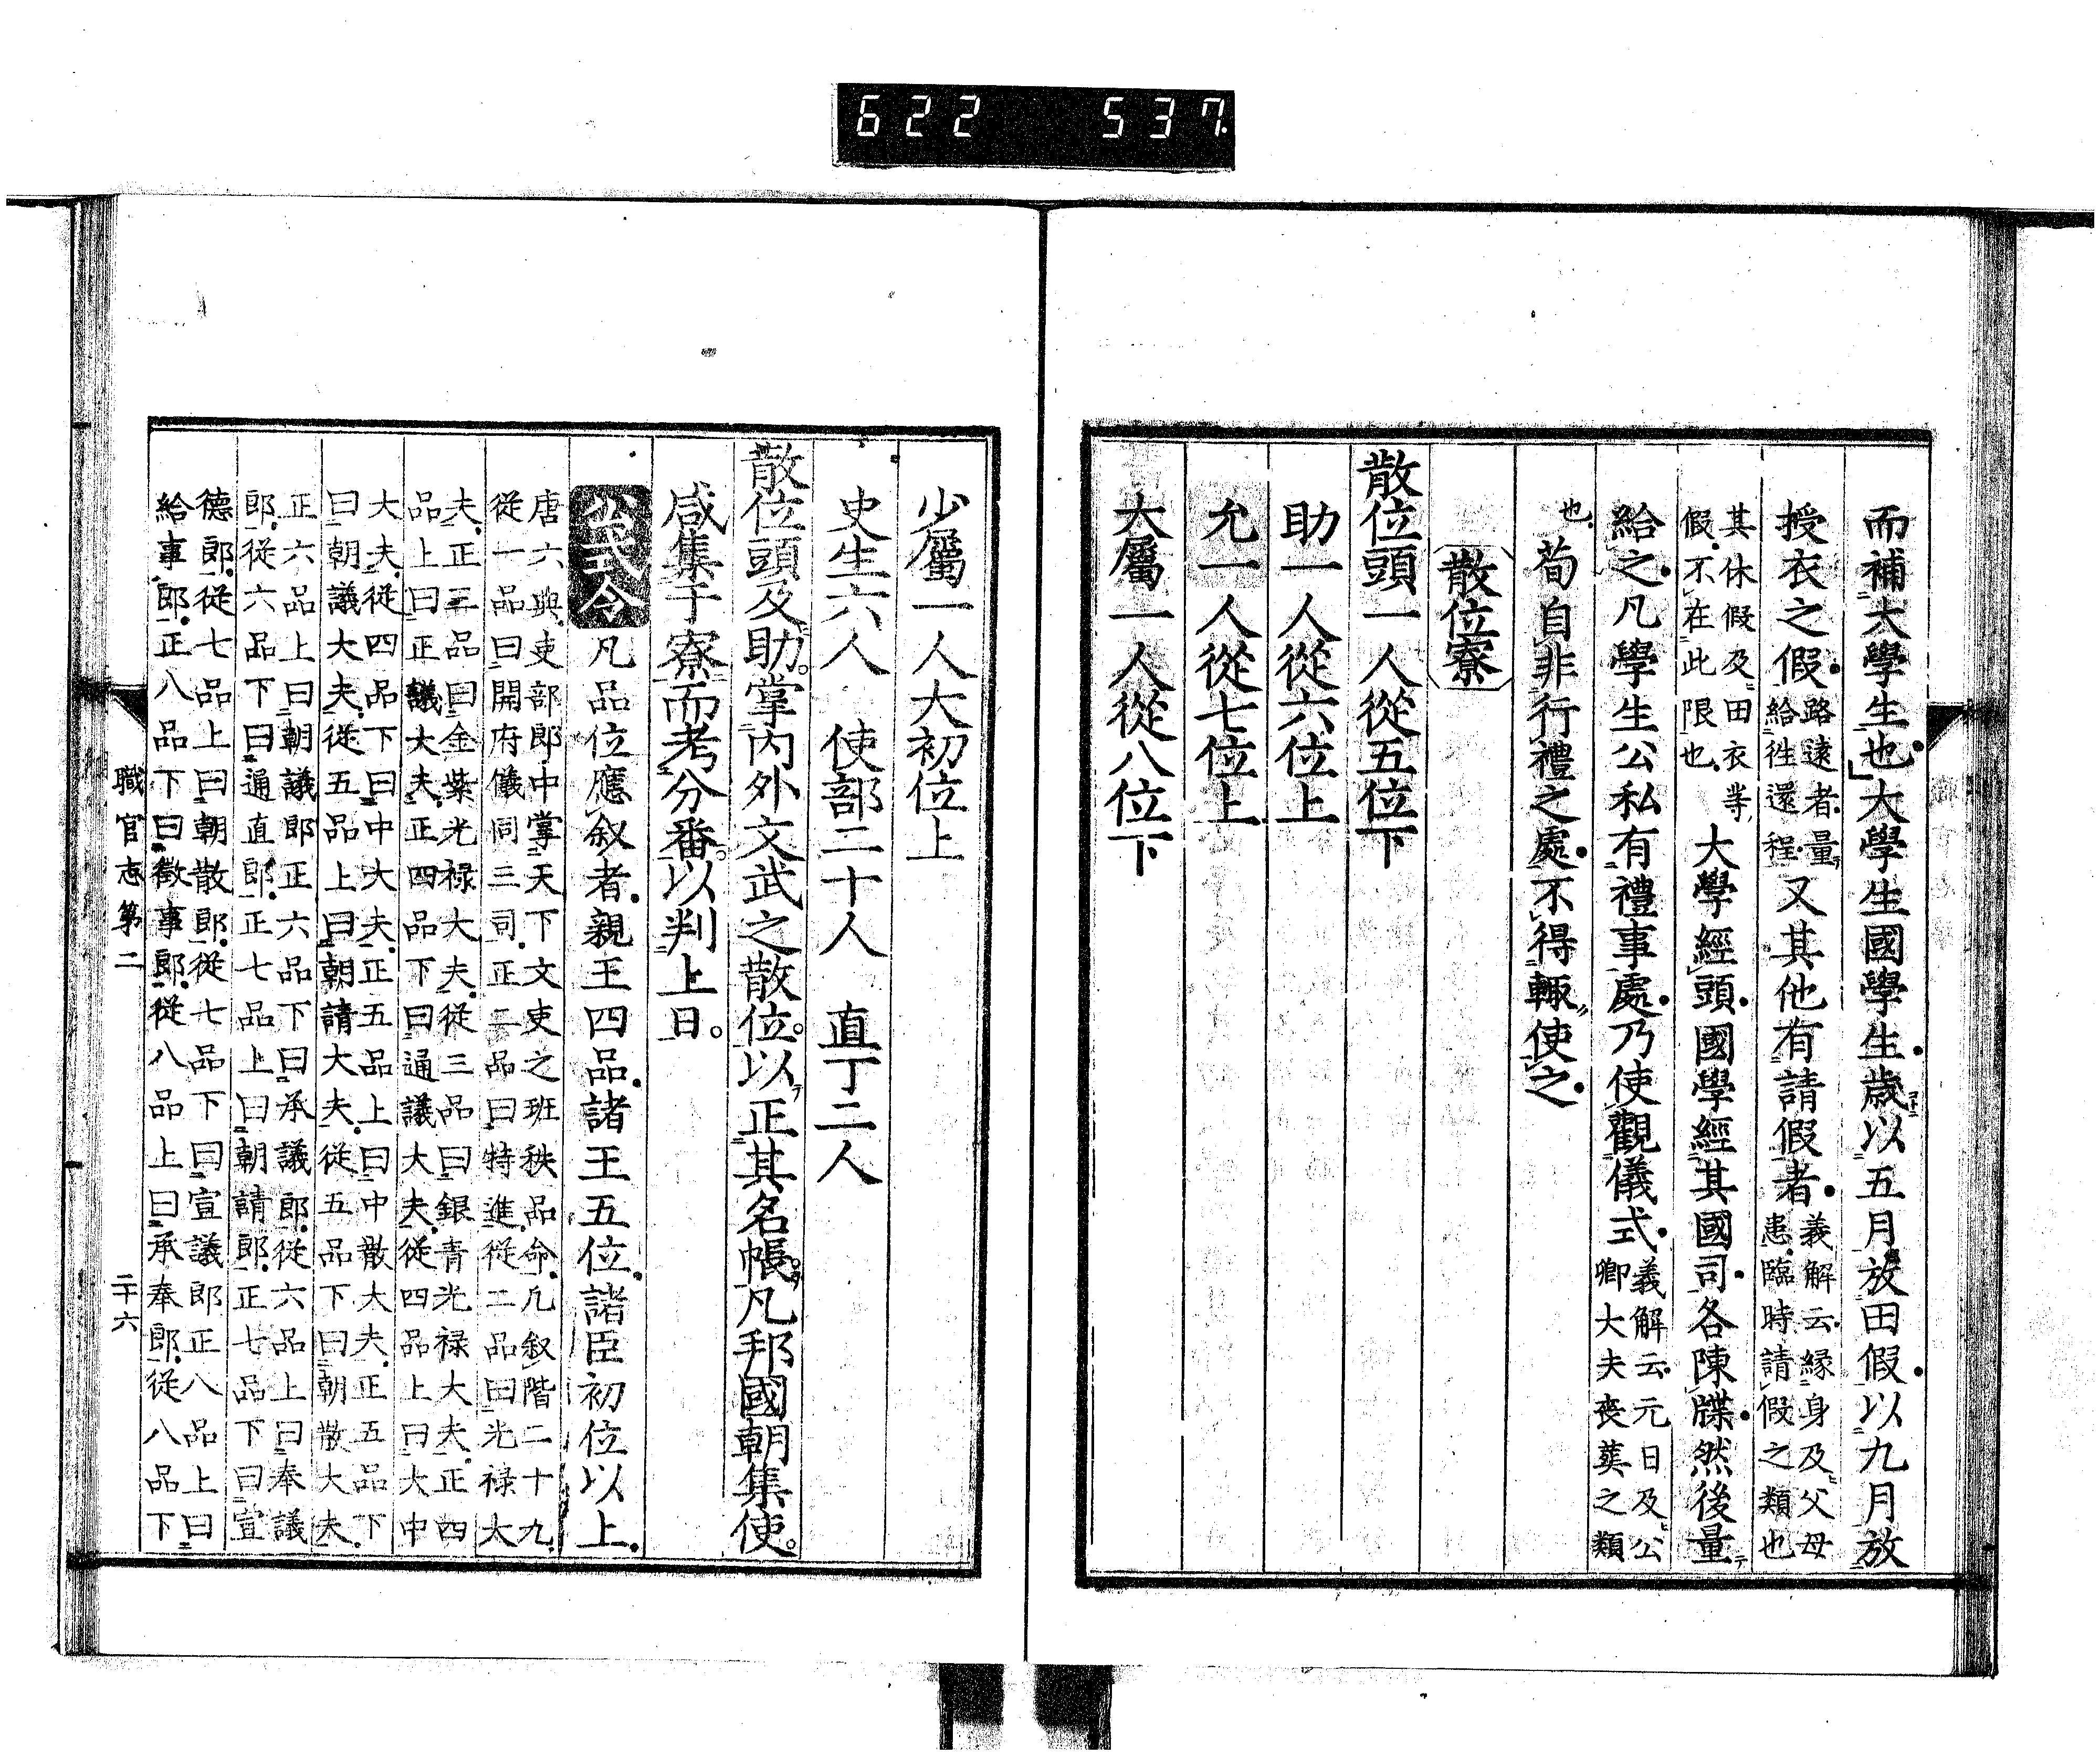 622 537.
而補大學生也大學生國學生歳以五月放田假以九月放
授衣之假路遠者量給徃還程又其他有請假者義解云縁身及父母患臨時請假之類也
其休假及田衣等假不在此限也大學經頭國學經其國司各陳牒然後量
給之凡學生公私有禮事處乃使觀儀式義解云元日及公卿大夫喪葬之類
也苟自非行禮之處不得輙使之
散位寮
散位頭一人從五位下
助一人從六位上
允一人從七位上
大屬一人從八位下
少屬一人大初位上
史生六人 使部二十人 直丁二人
散位頭及助掌内外文武之散位以正其名帳凡邦國朝集使
咸集于寮而考分番以判上日
公式令凡品位應叙者親王四品諸王五位諸臣初位以上
唐六典吏部郎中掌天下文吏之班秩品命凡叙階二十九
從一品曰開府儀同三司正二品曰特進從二品曰光禄大
夫正三品曰金紫光禄大夫從三品曰銀青光禄大夫正四
品上曰正議大夫正四品下曰通議大夫從四品上曰大中
大夫從四品下曰中大夫正五品上曰中散大夫正五品下
曰朝議大夫從五品上曰朝請大夫從五品下曰朝散大夫
正六品上曰朝議郎正六品下曰承議郎從六品上曰奉議
郎從六品下曰通直郎正七品上曰朝請郎正七品下曰宣
德郎從七品上曰朝散郎從七品下曰宣議郎正八品上曰
給事郎正八品下曰徴事郎從八品上曰承奉郎從八品下
職官志第二 二十六